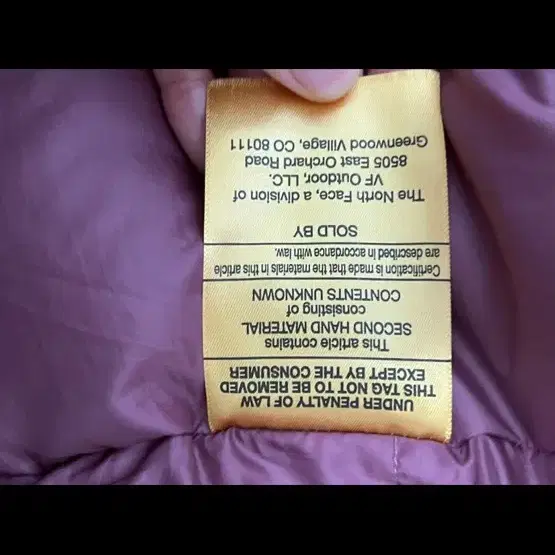 UNDER PENALTY OF LAW
THIS TAG NOT TO BE REMOVED
EXCEPT BY THE CONSUMER
This article contains
SECOND HAND MATERIAL
consisting of
CONTENTS UNKNOWN
Certification is made that the materials in this article
are described in accordance with law.
SOLD BY
The North Face, a division of
VF Outdoor, LLC.
8505 East Orchard Road
Greenwood Village, CO 80111